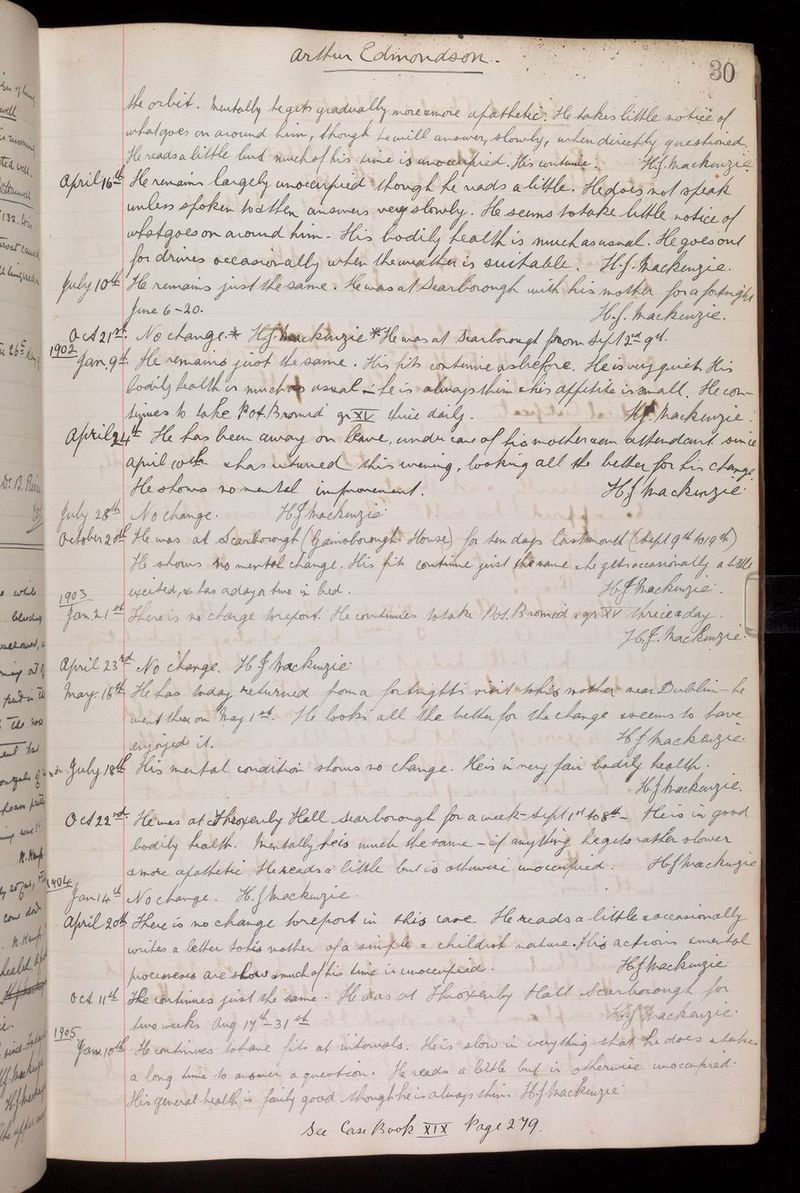 Arthur Edmondson.
30
the orbit. Mentally he gets gradually more & more apathetic. He takes little notice of
what goes on around him, though he will answer, slowly, when directly questioned.
He reads a little but much of his time is unoccupied. His fits continue. H.J. Mackenzie
April 16th He remains largely unoccupied though he reads a little. He does not speak
unless spoken to & then answers very slowly. He seems to take little notice of
what goes on around him. His bodily health is much as usual. He goes out
for drives occasionally when the weather is suitable. H.J. Mackenzie.
July 10th He remains just the same. He was at Scarborough with his mother for a fortnight
June 6-20. H.J. Mackenzie.
Oct 21st. No change.* H.J. Mackenzie *He was at Scarborough from Sept 2nd 9th.
1902
Jan. 9th. He remains just the same. His fits continue as before. He is very quiet. His
bodily health is much as usual - he is always thin & his appetite is small. He con-
tinues to take Pot. Bromid gr XV thrice daily. H.J. Mackenzie.
April 24th He has been away on leave, under care of his mother & an attendant since
April 10th & has returned this evening, looking all the better for his change.
He shows no mental improvement. H.J. Mackenzie
July 28th No change. H.J. Mackenzie
October 20th He was at Scarborough (Gainsborough House) for ten days last month (Sept 9th to 19th)
He shows no mental change. His fits continue just the same & he gets occasionally a little
excited, & has a day or two in bed. H.J. Mackenzie.
1903
Jan. 21st There is no change to report. He continues to take Pot. Bromid. gr XV thrice a day.
H.J. Mackenzie
April 23rd No change. H.J. Mackenzie
May. 16th He has today returned from a fortnight's visit to his mother near Dublin - he
went there on May 1st. He looks all the better for the change & seems to have
enjoyed it. H.J. Mackenzie.
July 18th His mental condition shows no change. He is in very fair bodily health.
H.J. Mackenzie.
Oct 22nd He was at Throxenby Hall Scarborough for a week - Sept 1st to 8th - He is in good
bodily health. Mentally he is much the same - if anything he gets rather slower
& more apathetic. He reads a little but is otherwise unoccupied. H.J. Mackenzie
1904
Jan 14th No change. H.J. Mackenzie.
April 20th There is no change to report in this case. He reads a little & occasionally
writes a letter to his mother of a simple & childish nature. His actions & mental
processes are slow & much of his time is unoccupied. H.J. Mackenzie
Oct 11th He continues just the same. He was at Throxenby Hall Scarborough for
two weeks Aug 17th-31st H.J. Mackenzie.
1905
Jan. 10th He continues to have fits at intervals. He is slow in everything that he does & takes
a long time to answer a question. He reads a little but is otherwise unoccupied.
His general health is fairly good though he is always thin. H.J. Mackenzie
See Case Book XIX Page 279.